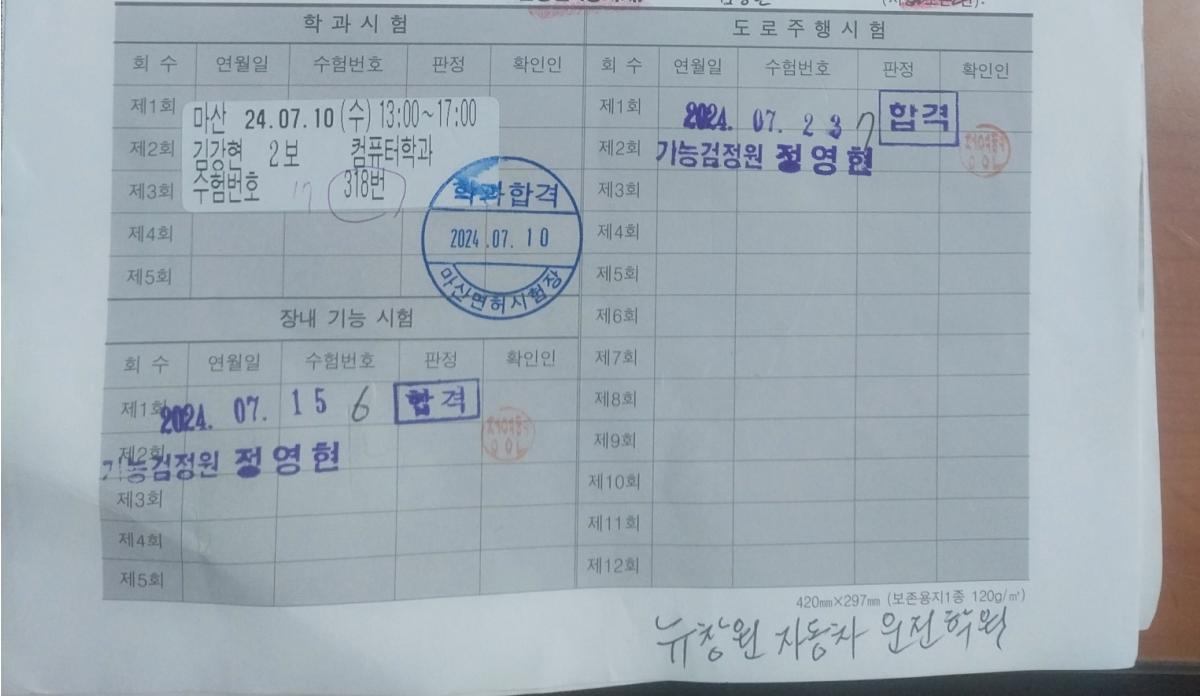 학과시험
회 수 연월일 수험번호 판정 확인인
제1회
제2회
제3회
제4회
제5회
마산 24.07.10 (수) 13:00~17:00
김강현 2보 컴퓨터학과
수험번호 17 318번
학과합격
2024.07.10
마산면허시험장
장내 기능 시험
회 수 연월일 수험번호 판정 확인인
제1회 2024. 07. 15 6 합격
제2회
기능검정원 정영현
제3회
제4회
제5회
도로주행시험
회 수 연월일 수험번호 판정 확인인
제1회 2024. 07. 23 7 합격
제2회 기능검정원 정영현
제3회
제4회
제5회
제6회
제7회
제8회
제9회
제10회
제11회
제12회
420㎜×297㎜ (보존용지1종 120g/㎡)
뉴창원 자동차 운전학원